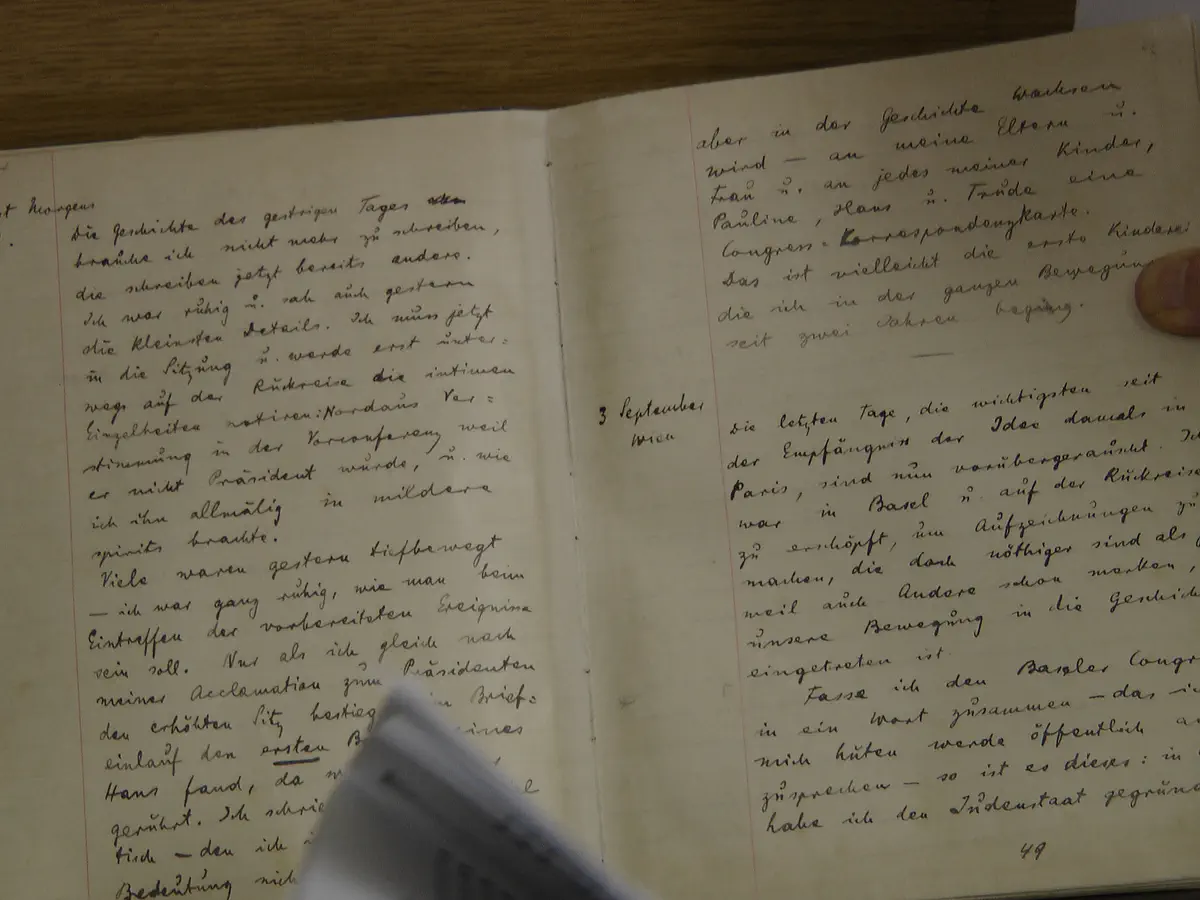 Morgens
Die Geschichte des gestrigen Tages
brauche ich nicht mehr zu schreiben,
die schreiben jetzt bereits andere.
Ich war ruhig u. sah auch gestern
die kleinsten Details. Ich muss jetzt
in die Sitzung u. werde erst unter=
wegs auf der Rückreise die intimen
Einzelheiten notiren: Nordaus Ver=
stimmung in der Vorconferenz weil
er nicht Präsident wurde, u. wie
ich ihn allmälig in mildere
spirits brachte.
Viele waren gestern tiefbewegt
— ich war ganz ruhig, wie man beim
Eintreffen der vorbereiteten Ereignisse
sein soll. Nur als ich gleich nach
meiner Acclamation zum Präsidenten
den erhöhten Sitz bestieg Brief=
einlauf den ersten B eines
Hans fand, da
gerührt. Ich schrie
tisch — den ich
Bedeutung nich
aber in der Geschichte wachsen
wird — an meine Eltern u.
Frau u. an jedes meiner Kinder,
Pauline, Hans u. Trude eine
Congress-Korrespondenzkarte.
Das ist vielleicht die erste Kinderei
die ich in der ganzen Bewegung
seit zwei Jahren beging.
3 September
Wien
Die letzten Tage, die wichtigsten seit
der Empfängniss der Idee damals in
Paris, sind nun vorübergerauscht. Ich
war in Basel u. auf der Rückreise
zu erschöpft, um Aufzeichnungen zu
machen, die doch nöthiger sind als
weil auch Andere schon merken,
unsere Bewegung in die Geschich
eingetreten ist.
Fasse ich den Basler Congr
in ein Wort zusammen — das ic
mich hüten werde öffentlich
zusprechen — so ist es dieses: in
habe ich den Judenstaat gegründ
49